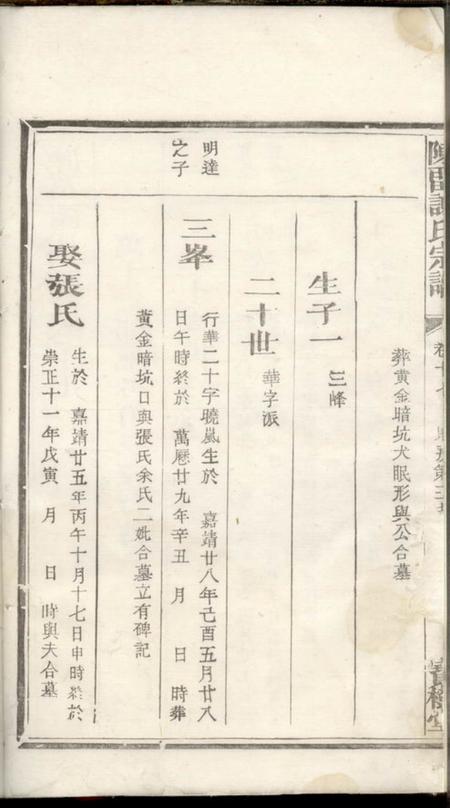 葬黃金暗坑犬眠形與公合墓
生子一 三峰
二十世 華字派
明達
之子
三峯
行華二十字曉嵐生於 嘉靖廿八年己酉五月廿八
日午時終於 萬曆廿九年辛丑 月 日 時葬
黃金暗坑口與張氏余氏二妣合墓立有碑記
娶張氏
生於 嘉靖廿五年丙午十月十七日申時終於
崇正十一年戊寅 月 日 時與夫合墓